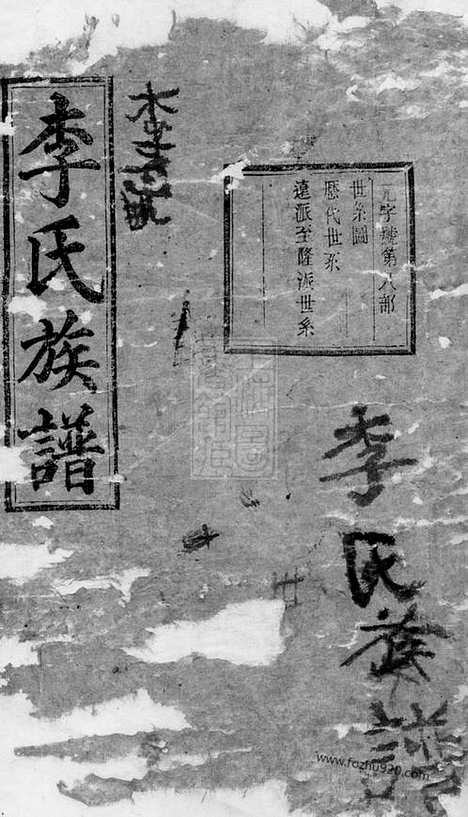 字號第八部
世系圖
歷代世系
遠派至隆派世系
李氏族譜
李氏族譜
www.fozhu920.com